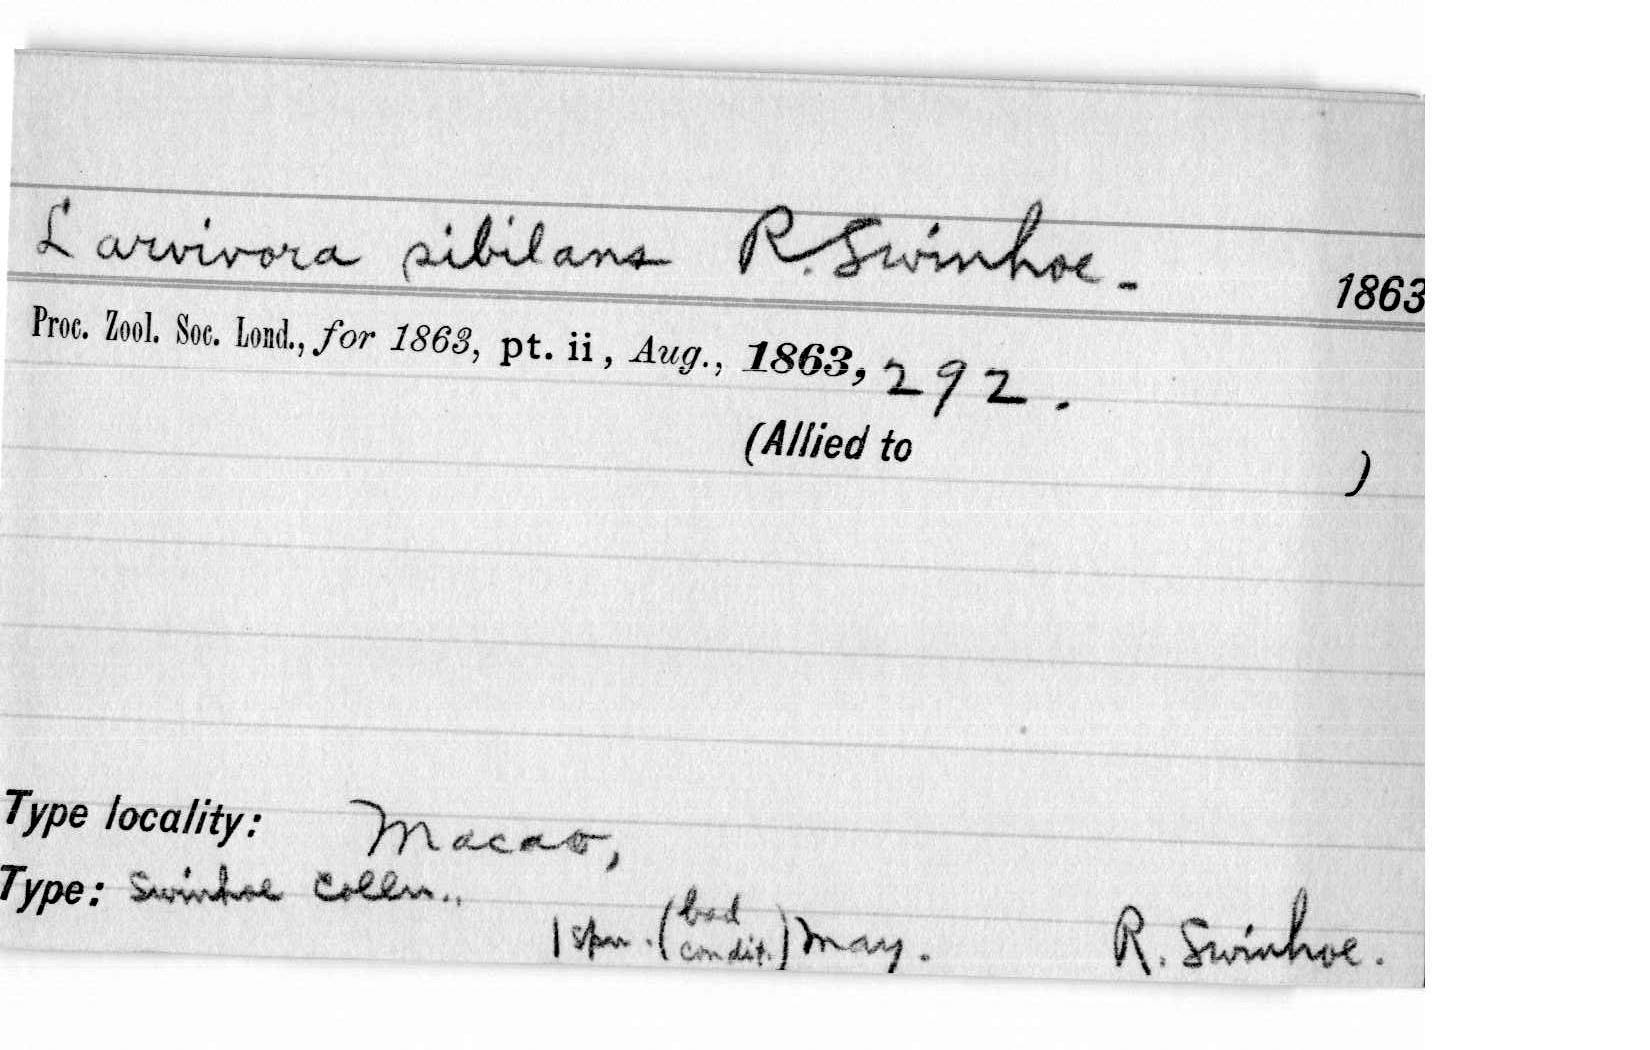 Larvivora sibilans R. Swinhoe. 1863
Proc. Zool. Soc. Lond., for 1863, pt. ii, Aug., 1863, 292.
(Allied to )
Type locality: Macao,
Type: Swinhoe Colln..
1 spm. (bad condit.) May. R. Swinhoe.